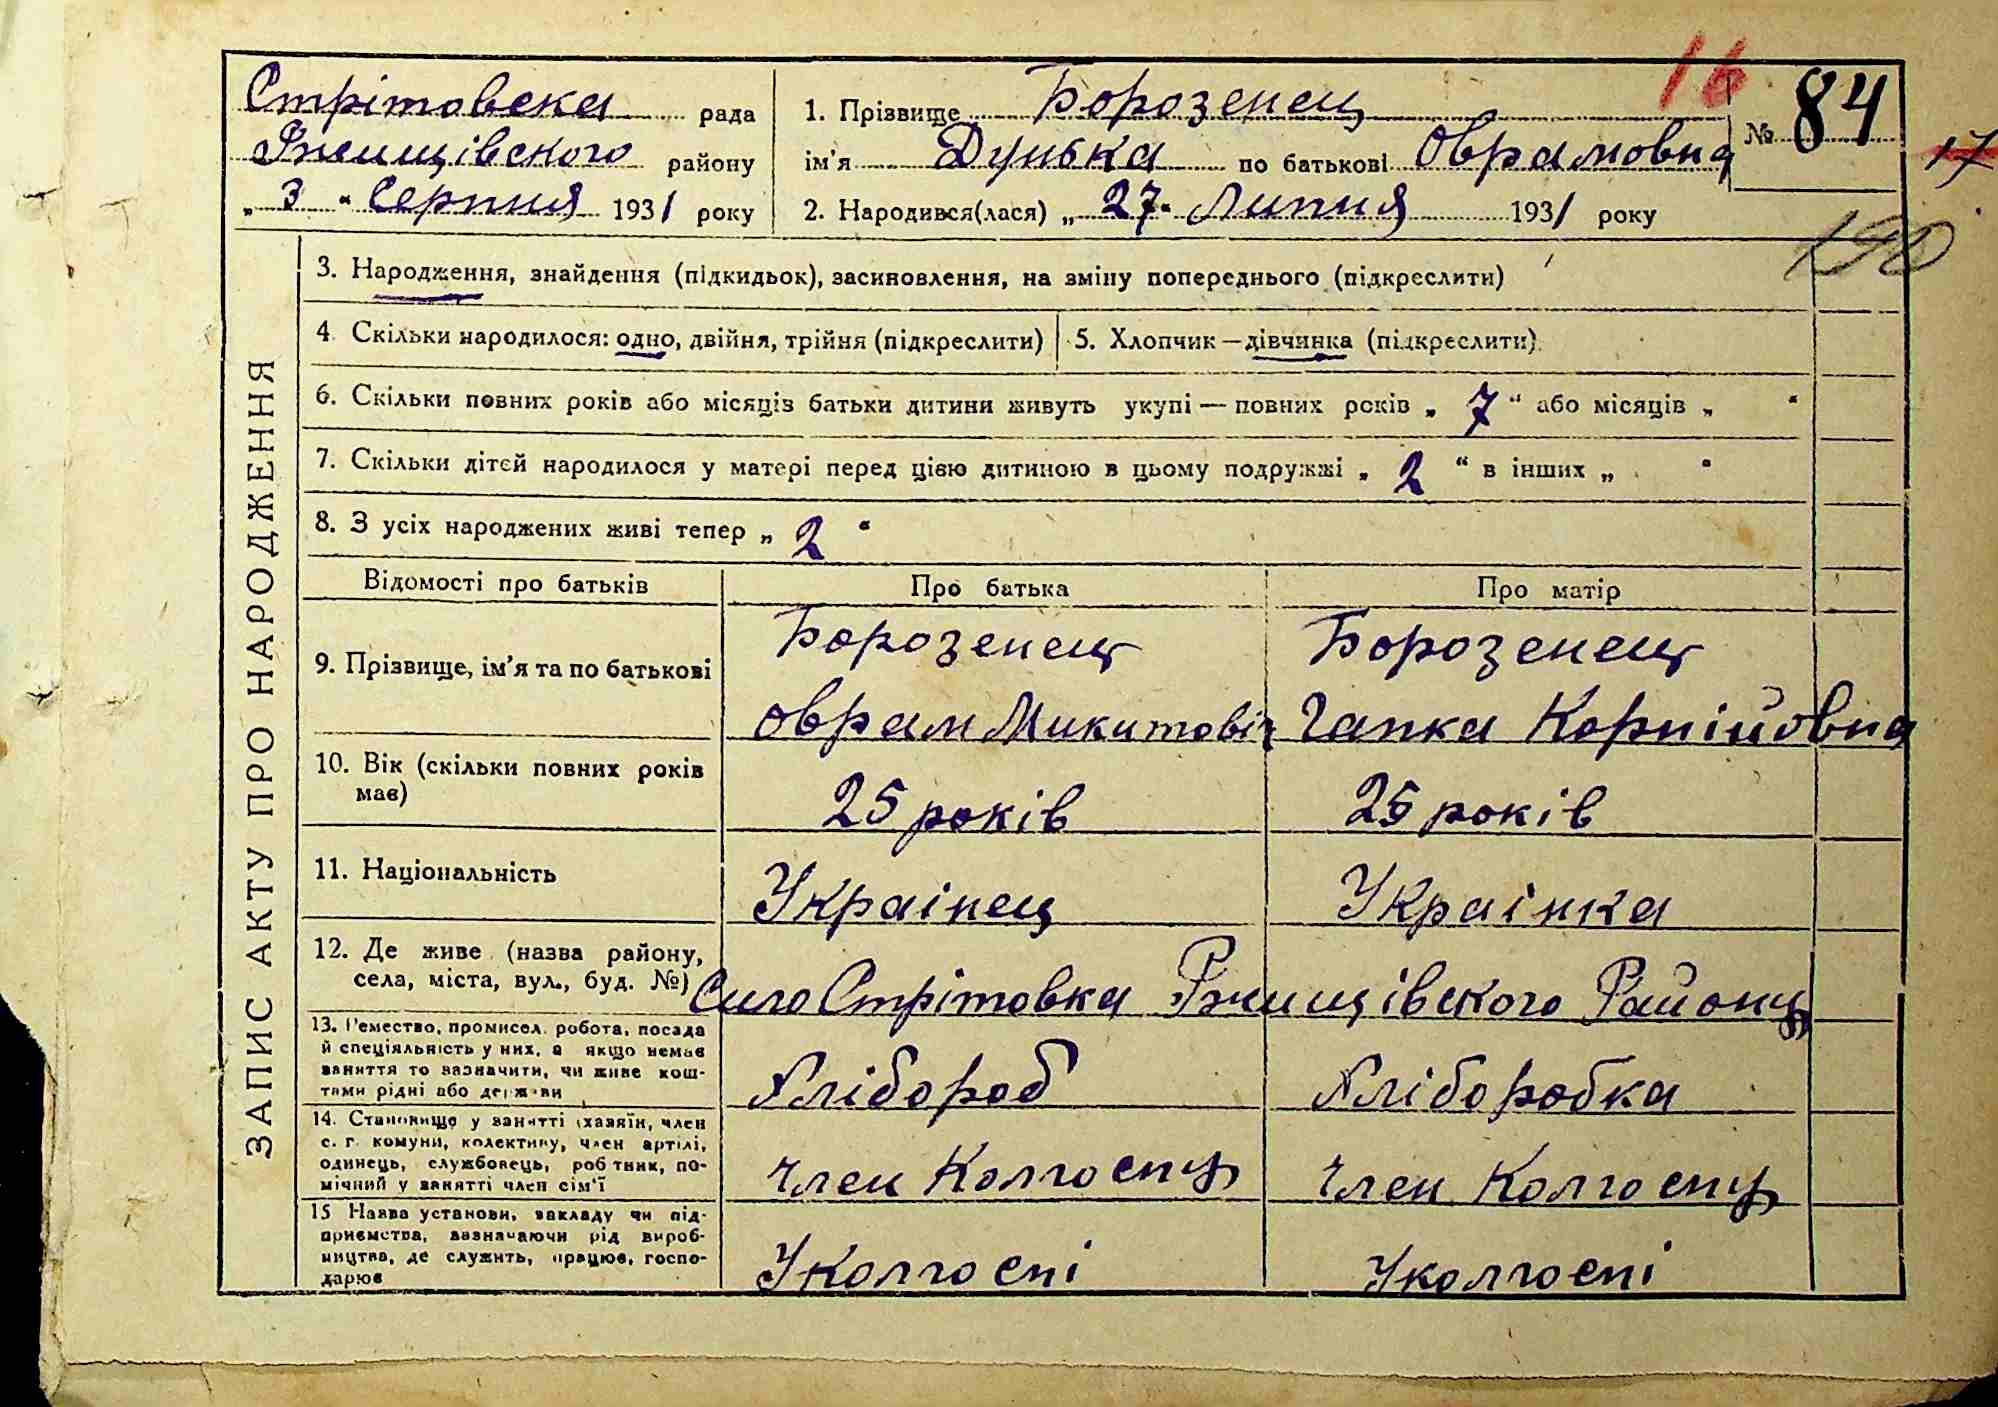 16
Стрітовска рада
Ржищівского району
„ 3 “ Серпня 1931 року
1. Прізвище Борозенец
ім'я Дунька по батькові Оврамовна
2. Народився(лася) „ 27 “ Липня 1931 року
№ 84
17
190
ЗАПИС АКТУ ПРО НАРОДЖЕННЯ
3. Народження, знайдення (підкидьок), засиновлення, на зміну попереднього (підкреслити)
4. Скільки народилося: одно, двійня, трійня (підкреслити)
5. Хлопчик — дівчинка (підкреслити)
6. Скільки повних років або місяців батьки дитини живуть укупі — повних років „ 7 “ або місяців „ “
7. Скільки дітей народилося у матері перед цією дитиною в цьому подружжі „ 2 “ в інших „ “
8. З усіх народжених живі тепер „ 2 “
Відомості про батьків Про батька Про матір
9. Прізвище, ім'я та по батькові
Борозенец Борозенец
Оврам Микитовіч Гапка Корнійовна
10. Вік (скільки повних років
має)
25 років 25 років
11. Національність
Украінец Украінка
12. Де живе (назва району,
села, міста, вул., буд. №)
Сило Стрітовка Ржищівского Району
13. Ремество, промисел, робота, посада
й спеціяльність у них, а якщо немає
заняття то зазначити, чи живе кош-
тами рідні або держави
Хлібороб Хліборобка
14. Становище у занятті (хазяїн, член
с. г. комуни, колективу, член артілі,
одинець, службовець, робітник, по-
мічний у занятті член сім'ї
Член Колгоспу Член Колгоспу
15 Назва установи, закладу чи під-
приємства, зазначаючи рід вироб-
ництва, де служить, працює, госпо-
дарює
У колгоспі У колгоспі